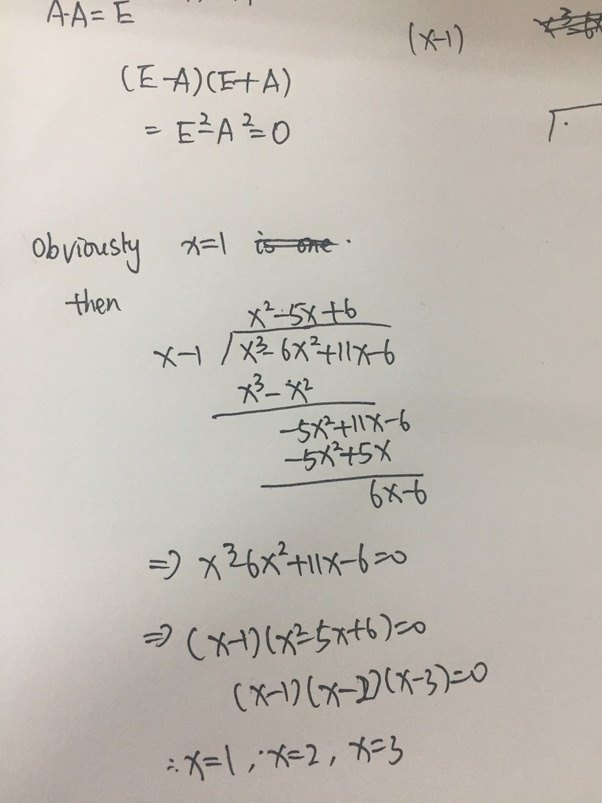 A·A = E
(x-1)
(E-A)(E+A)
= E²-A²=0
Obviously x=1 is one.
then
x²-5x+6
x-1 / x³-6x²+11x-6
x³-x²
-5x²+11x-6
-5x²+5x
6x-6
⇒ x³-6x²+11x-6=0
⇒ (x-1)(x²-5x+6)=0
(x-1)(x-2)(x-3)=0
∴x=1, x=2, x=3